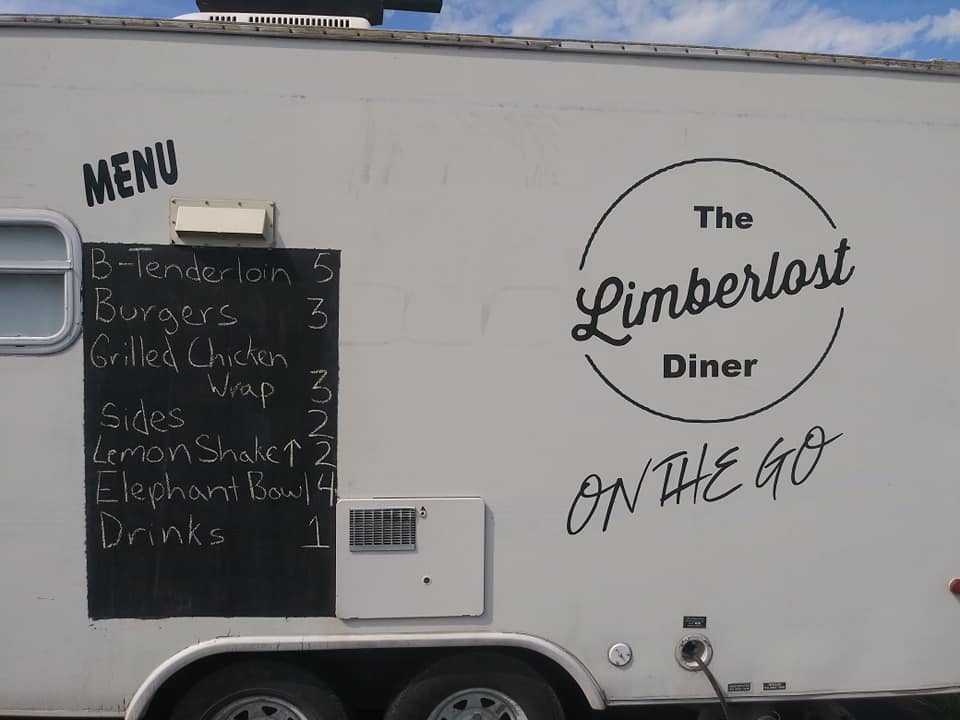 MENU
B-Tenderloin 5
Burgers 3
Grilled Chicken
Wrap 3
Sides 2
Lemon Shake↑ 2
Elephant Bowl 4
Drinks 1
The
Limberlost
Diner
ON THE GO